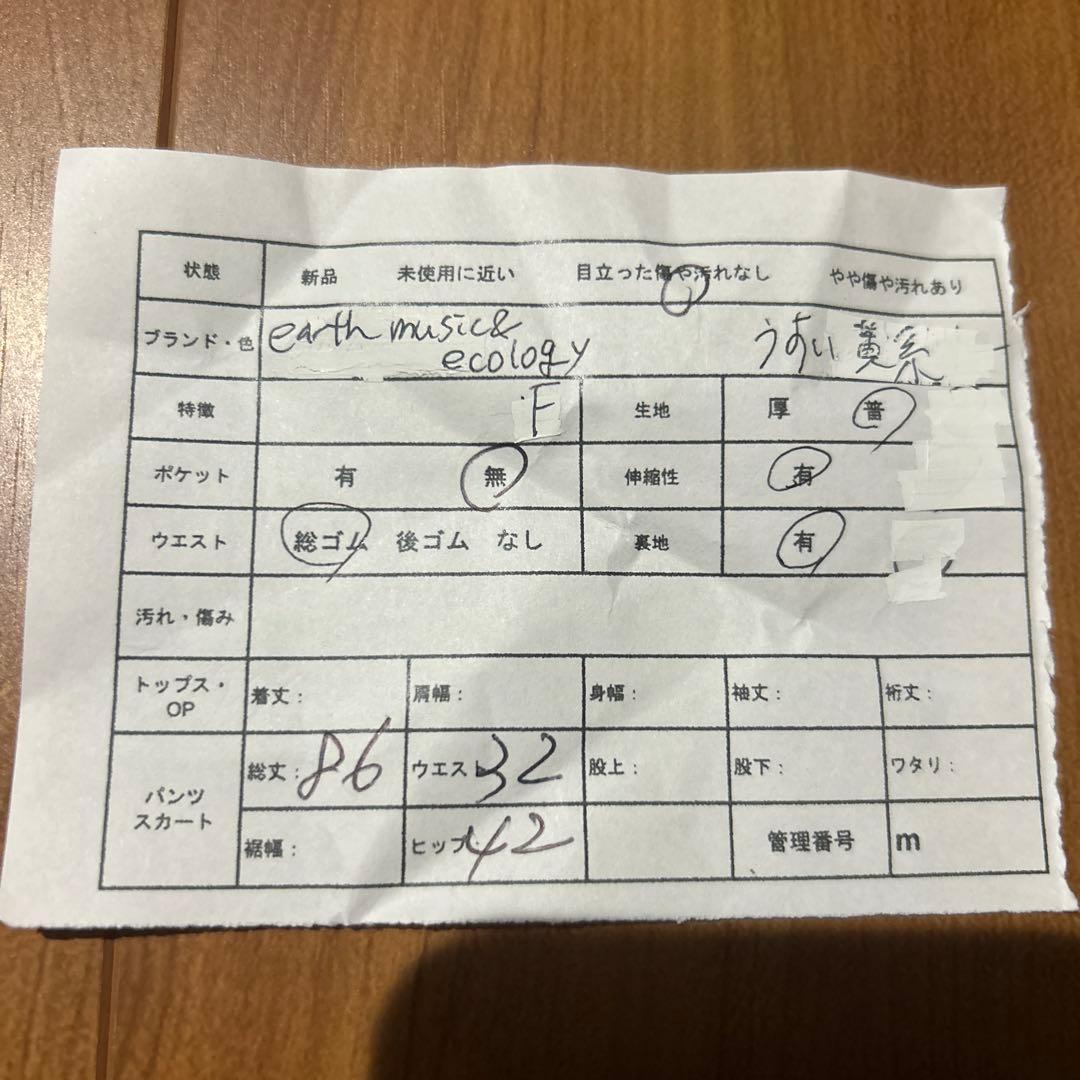 状態 新品 未使用に近い 目立った傷や汚れなし やや傷や汚れあり
ブランド・色 earth music& うすい黄系
ecology
特徴 F 生地 厚 普
ポケット 有 無 伸縮性 有
ウエスト 総ゴム 後ゴム なし 裏地 有
汚れ・傷み
トップス・ 着丈: 肩幅: 身幅: 袖丈: 裄丈:
OP
パンツ 総丈:86 ウエスト 32 股上: 股下: ワタリ:
スカート 裾幅: ヒップ: 42 管理番号 m